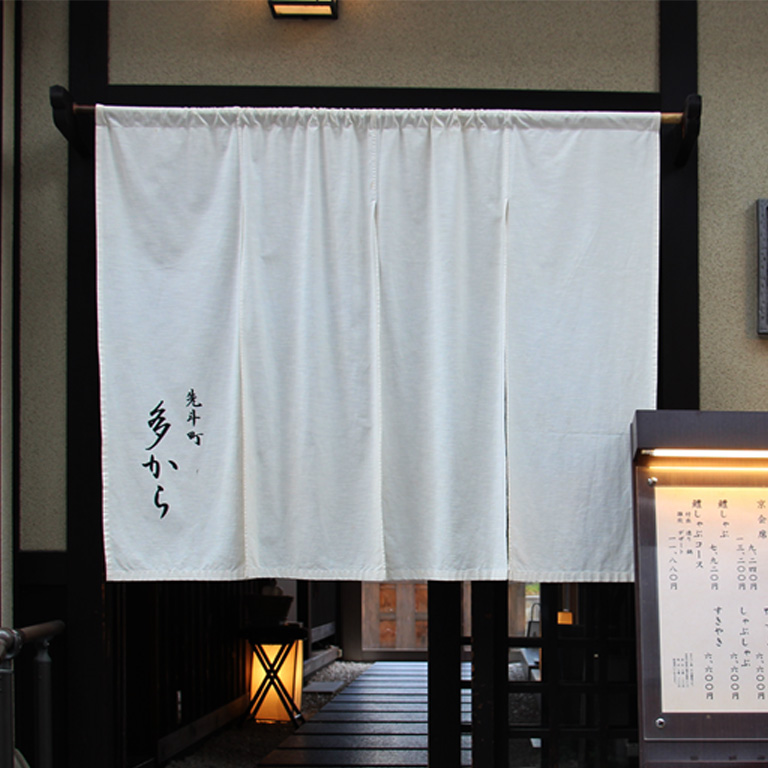 先斗町
多から
京会席
九、二四〇円
一三、二〇〇円
鱧しゃぶ
七、九二〇円
鱧しゃぶコース
一一、八八〇円
しゃぶしゃぶ
六、六〇〇円
すきやき
六、六〇〇円